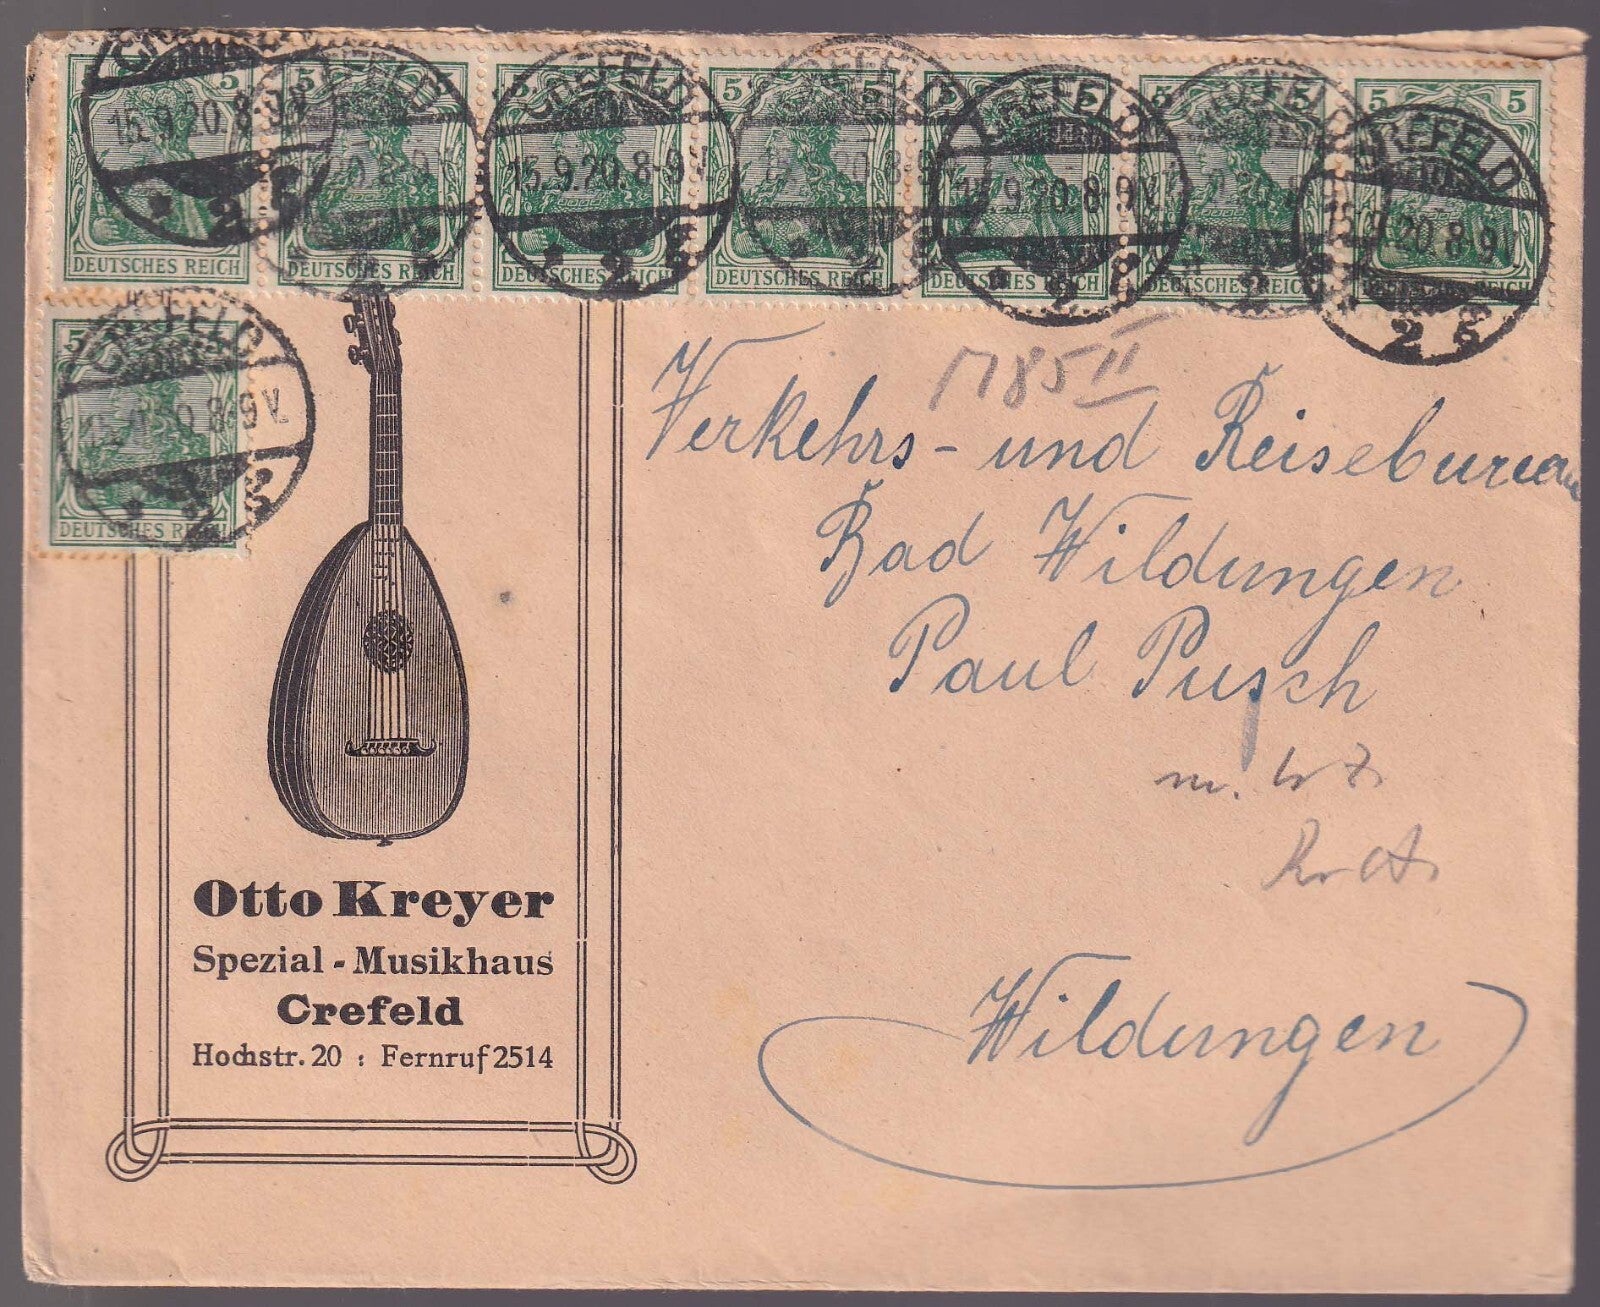 5 5 5 5 5 5 5 5 5
CREFELD CREFELD CREFELD CREFELD CREFELD CREFELD
15.9.20.8-9V. 15.9.20.8-9V. 15.9.20.8-9V. 15.9.20.8-9V.
* 2 c
DEUTSCHES REICH DEUTSCHES REICH DEUTSCHES REICH DEUTSCHES REICH DEUTSCHES REICH DEUTSCHES REICH DEUTSCHES REICH
5
CREFELD
8-9V.
DEUTSCHES REICH
1785 II
Verkehrs- und Reisebureau
Bad Wildungen
Paul Pusch
Wildungen
Otto Kreyer
Spezial - Musikhaus
Crefeld
Hochstr. 20 : Fernruf 2514